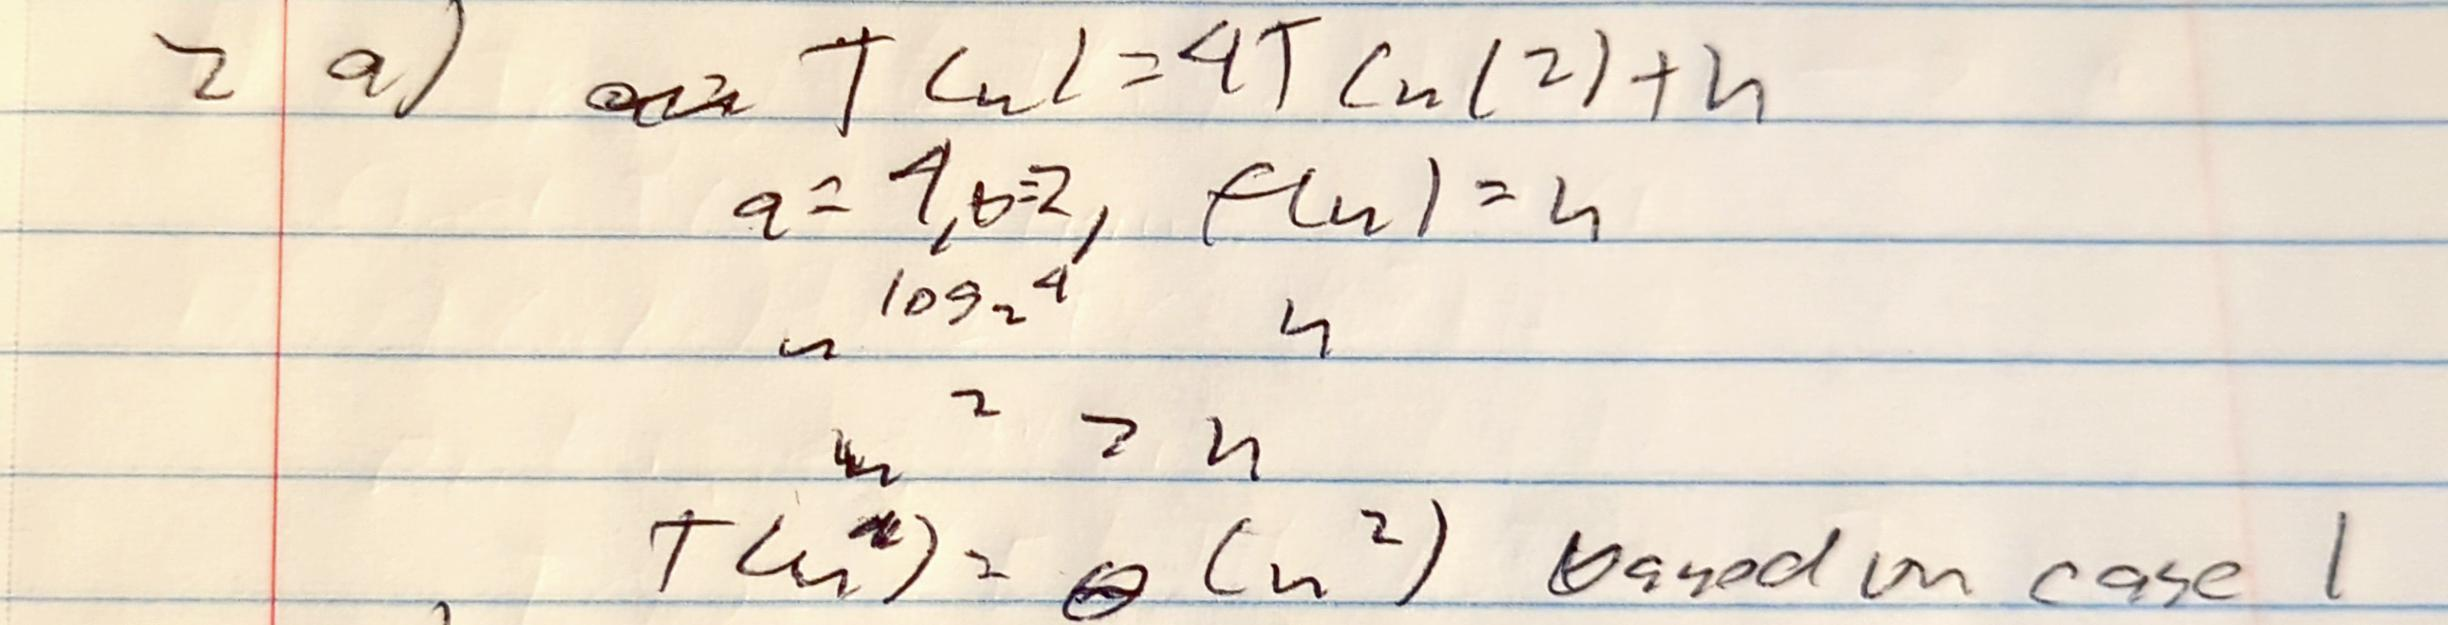 2 a) T(n) = 4T(n/2) + n
a = 4, b=2, f(n) = n
n^log_2 4 n
n^2 > n
T(n) = θ(n^2) based on case 1